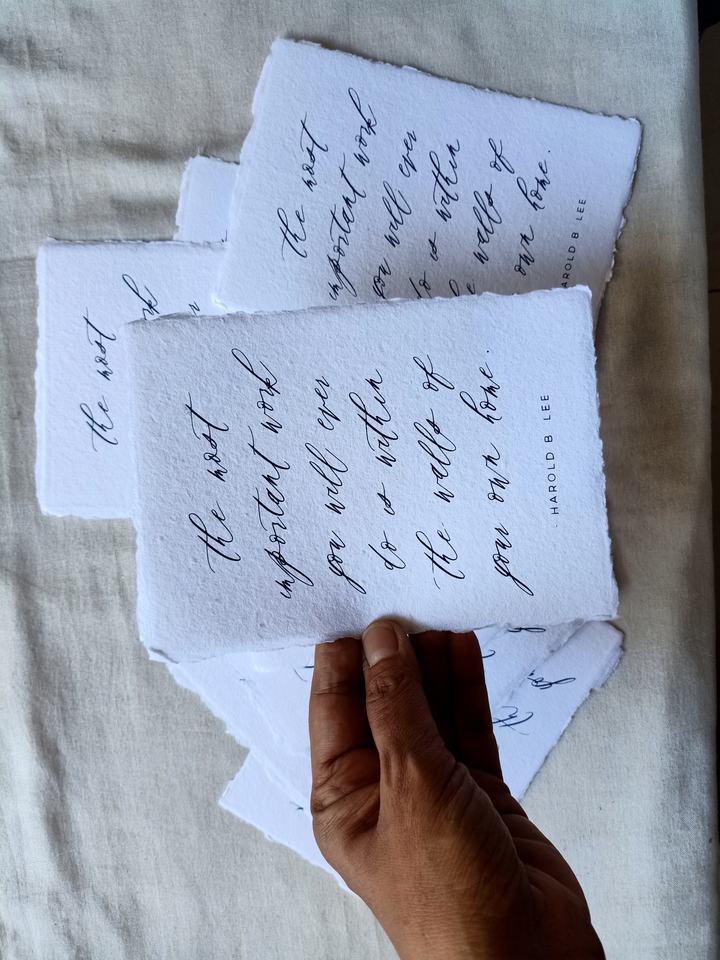 the most
important work
you will ever
do is within
the walls of
your own home.
· HAROLD B LEE
the most
important work
you will ever
do is within
walls of
own home.
HAROLD B LEE
the most